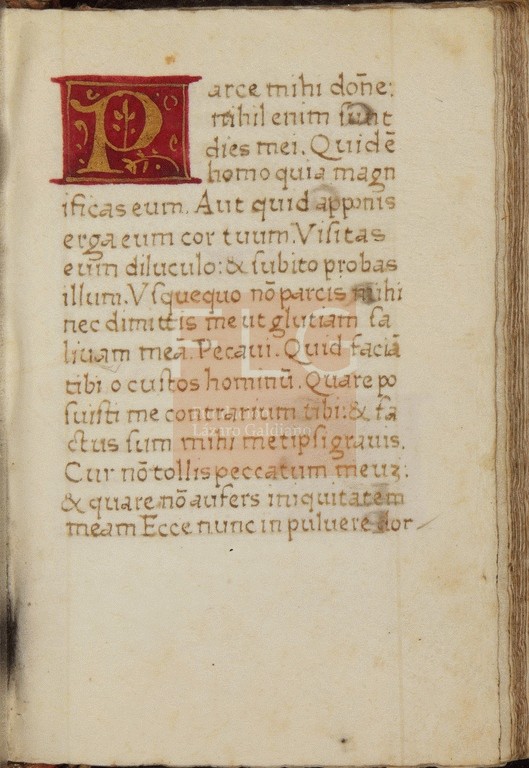 Parce mihi dom̄e:
nihil enim sunt
dies mei. Quid ē
homo quia magn
ificas eum. Aut quid apponis
erga eum cor tuum. Visitas
eum diluculo: & subito probas
illum. Vsquequo nō parcis mihi
nec dimittis me ut glutiam sa
livam meā. Pecavi. Quid faciā
tibi o custos hominū. Quare po
suisti me contrarium tibi: & fa
ctus sum mihi metipsi gravis.
Cur nō tollis peccatum meuz:
& quare nō aufers iniquitatem
meam Ecce nunc in pulvere dor
FLG
Lázaro Galdiano